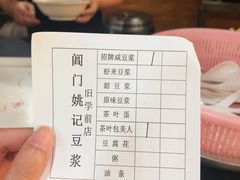 阊门姚记豆浆
旧学前店
招牌咸豆浆
虾米豆浆
甜豆浆
原味豆浆
茶叶蛋
茶叶包美人
豆腐花
粥
油条